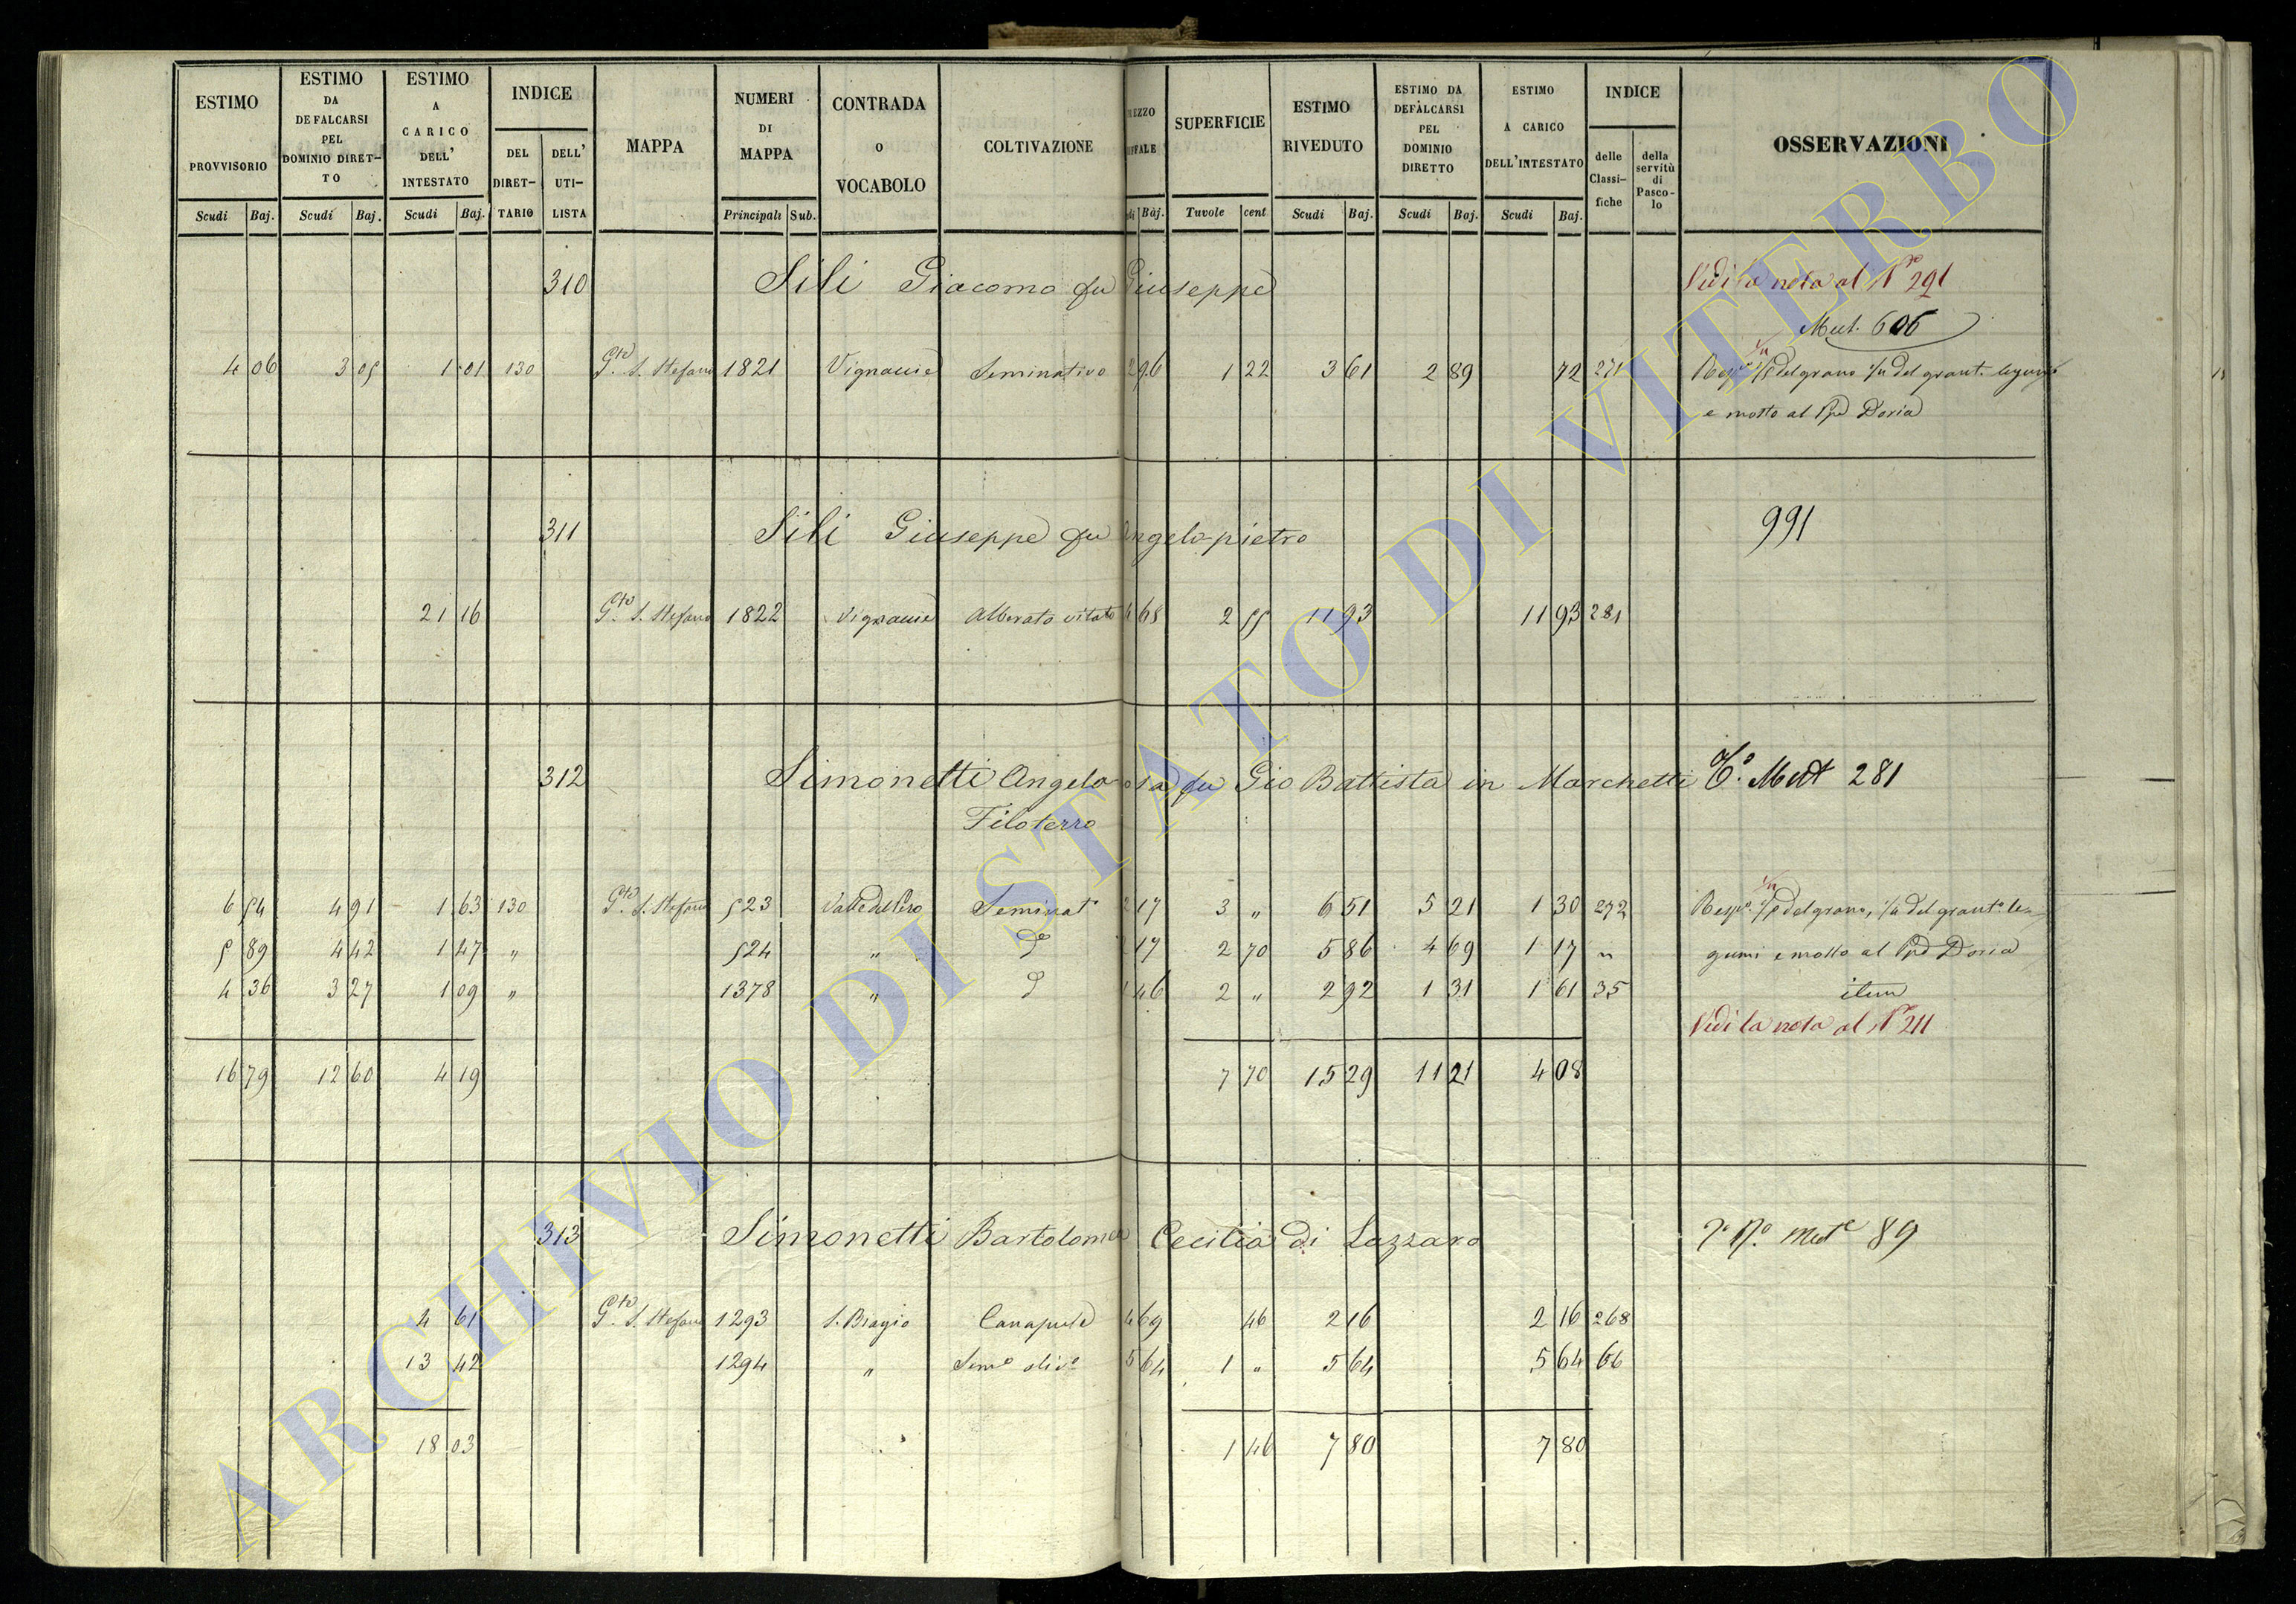 ESTIMO PROVVISORIO Scudi Baj.
ESTIMO DA DEFALCARSI PEL DOMINIO DIRET-TO Scudi Baj.
ESTIMO A CARICO DELL' INTESTATO Scudi Baj.
INDICE DEL DIRET-TARIO DELL' UTI-LISTA
MAPPA
NUMERI DI MAPPA Principali Sub.
CONTRADA O VOCABOLO
COLTIVAZIONE
SUPERFICIE Tavole cent
ESTIMO RIVEDUTO Scudi Baj.
ESTIMO DA DEFALCARSI PEL DOMINIO DIRETTO Scudi Baj.
ESTIMO A CARICO DELL'INTESTATO Scudi Baj.
INDICE delle Classi-fiche della servitù di Pasco-lo
OSSERVAZIONI
310 Sili Giacomo fu Giuseppe Vidi la nota al N° 291
Mut. 606
4 06 3 05 1 01 130 G.te S. Stefano 1821 Seminativo 2 96 1 22 3 61 2 89 72 271 del grano
e mosto al Ppe Doria
311 Sili Giuseppe fu Angelo pietro 991
21 16 G.te S. Stefano 1822 Alberato vitato 4 68 2 55 11 93 11 93 281
312 Simonetti Angela fu Gio Battista in Marchetti T.° Mut 281
Filoterro
6 54 4 91 1 63 130 G.te S. Stefano 523 Seminat° 2 17 3 " 6 51 5 21 1 30 272 del grano, le-
5 89 4 42 1 47 " 524 " d° 2 17 2 70 5 86 4 69 1 17 " gumi e mosto al Ppe Doria
4 36 3 27 1 09 " 1378 " d 1 46 2 " 2 92 1 31 1 61 35 item
Vidi la nota al N° 211
16 79 12 60 4 19 7 70 15 29 11 21 4 08
313 Simonetti Bartolomea Cecilia di Lazzaro Mut.e 89
4 61 G.te S. Stefano 1293 S. Biagio Canapule 4 69 46 2 16 2 16 268
13 42 1294 " Sem° oliv° 5 64 1 " 5 64 5 64 66
18 03 1 46 7 80 7 80
ARCHIVIO DI STATO DI VITERBO